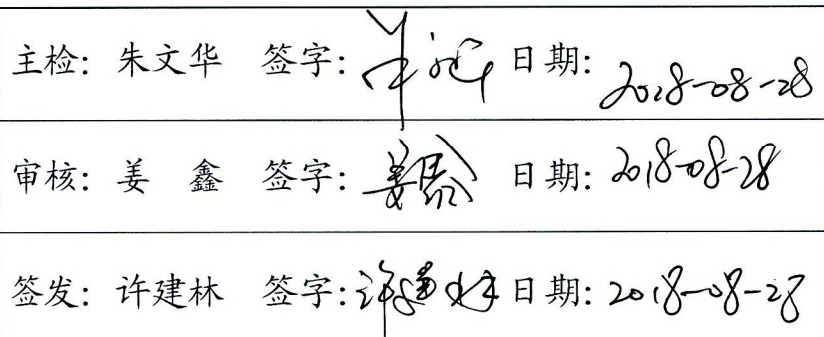 主检: 朱文华 签字: 日期: 2018-08-28
审核: 姜 鑫 签字: 姜鑫 日期: 2018-08-28
签发: 许建林 签字: 许建林 日期: 2018-08-28